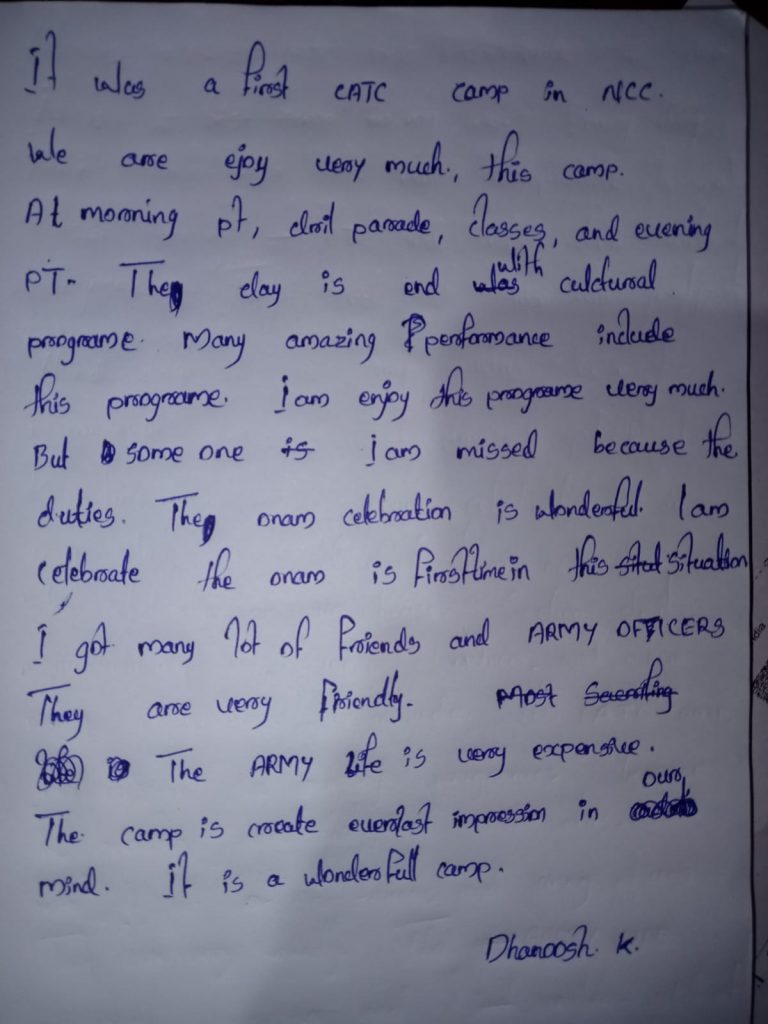 It was a first CATC camp in NCC.
We are ejoy very much., this camp.
At morning pt, dril parade, classes, and evening
PT. The day is end with culctural
programe. Many amazing performance include
this programe. I am enjoy this programe very much.
But some one I am missed because the
duties. The onam celebration is wonderful. I am
Celebrate the onam is first time in this situation
I got many lot of friends and ARMY OFFICERS
They are very friendly.
The ARMY life is very expensive.
The camp is create everlast impression in our
mind. It is a wonderfull camp.
Dhanoosh. K.